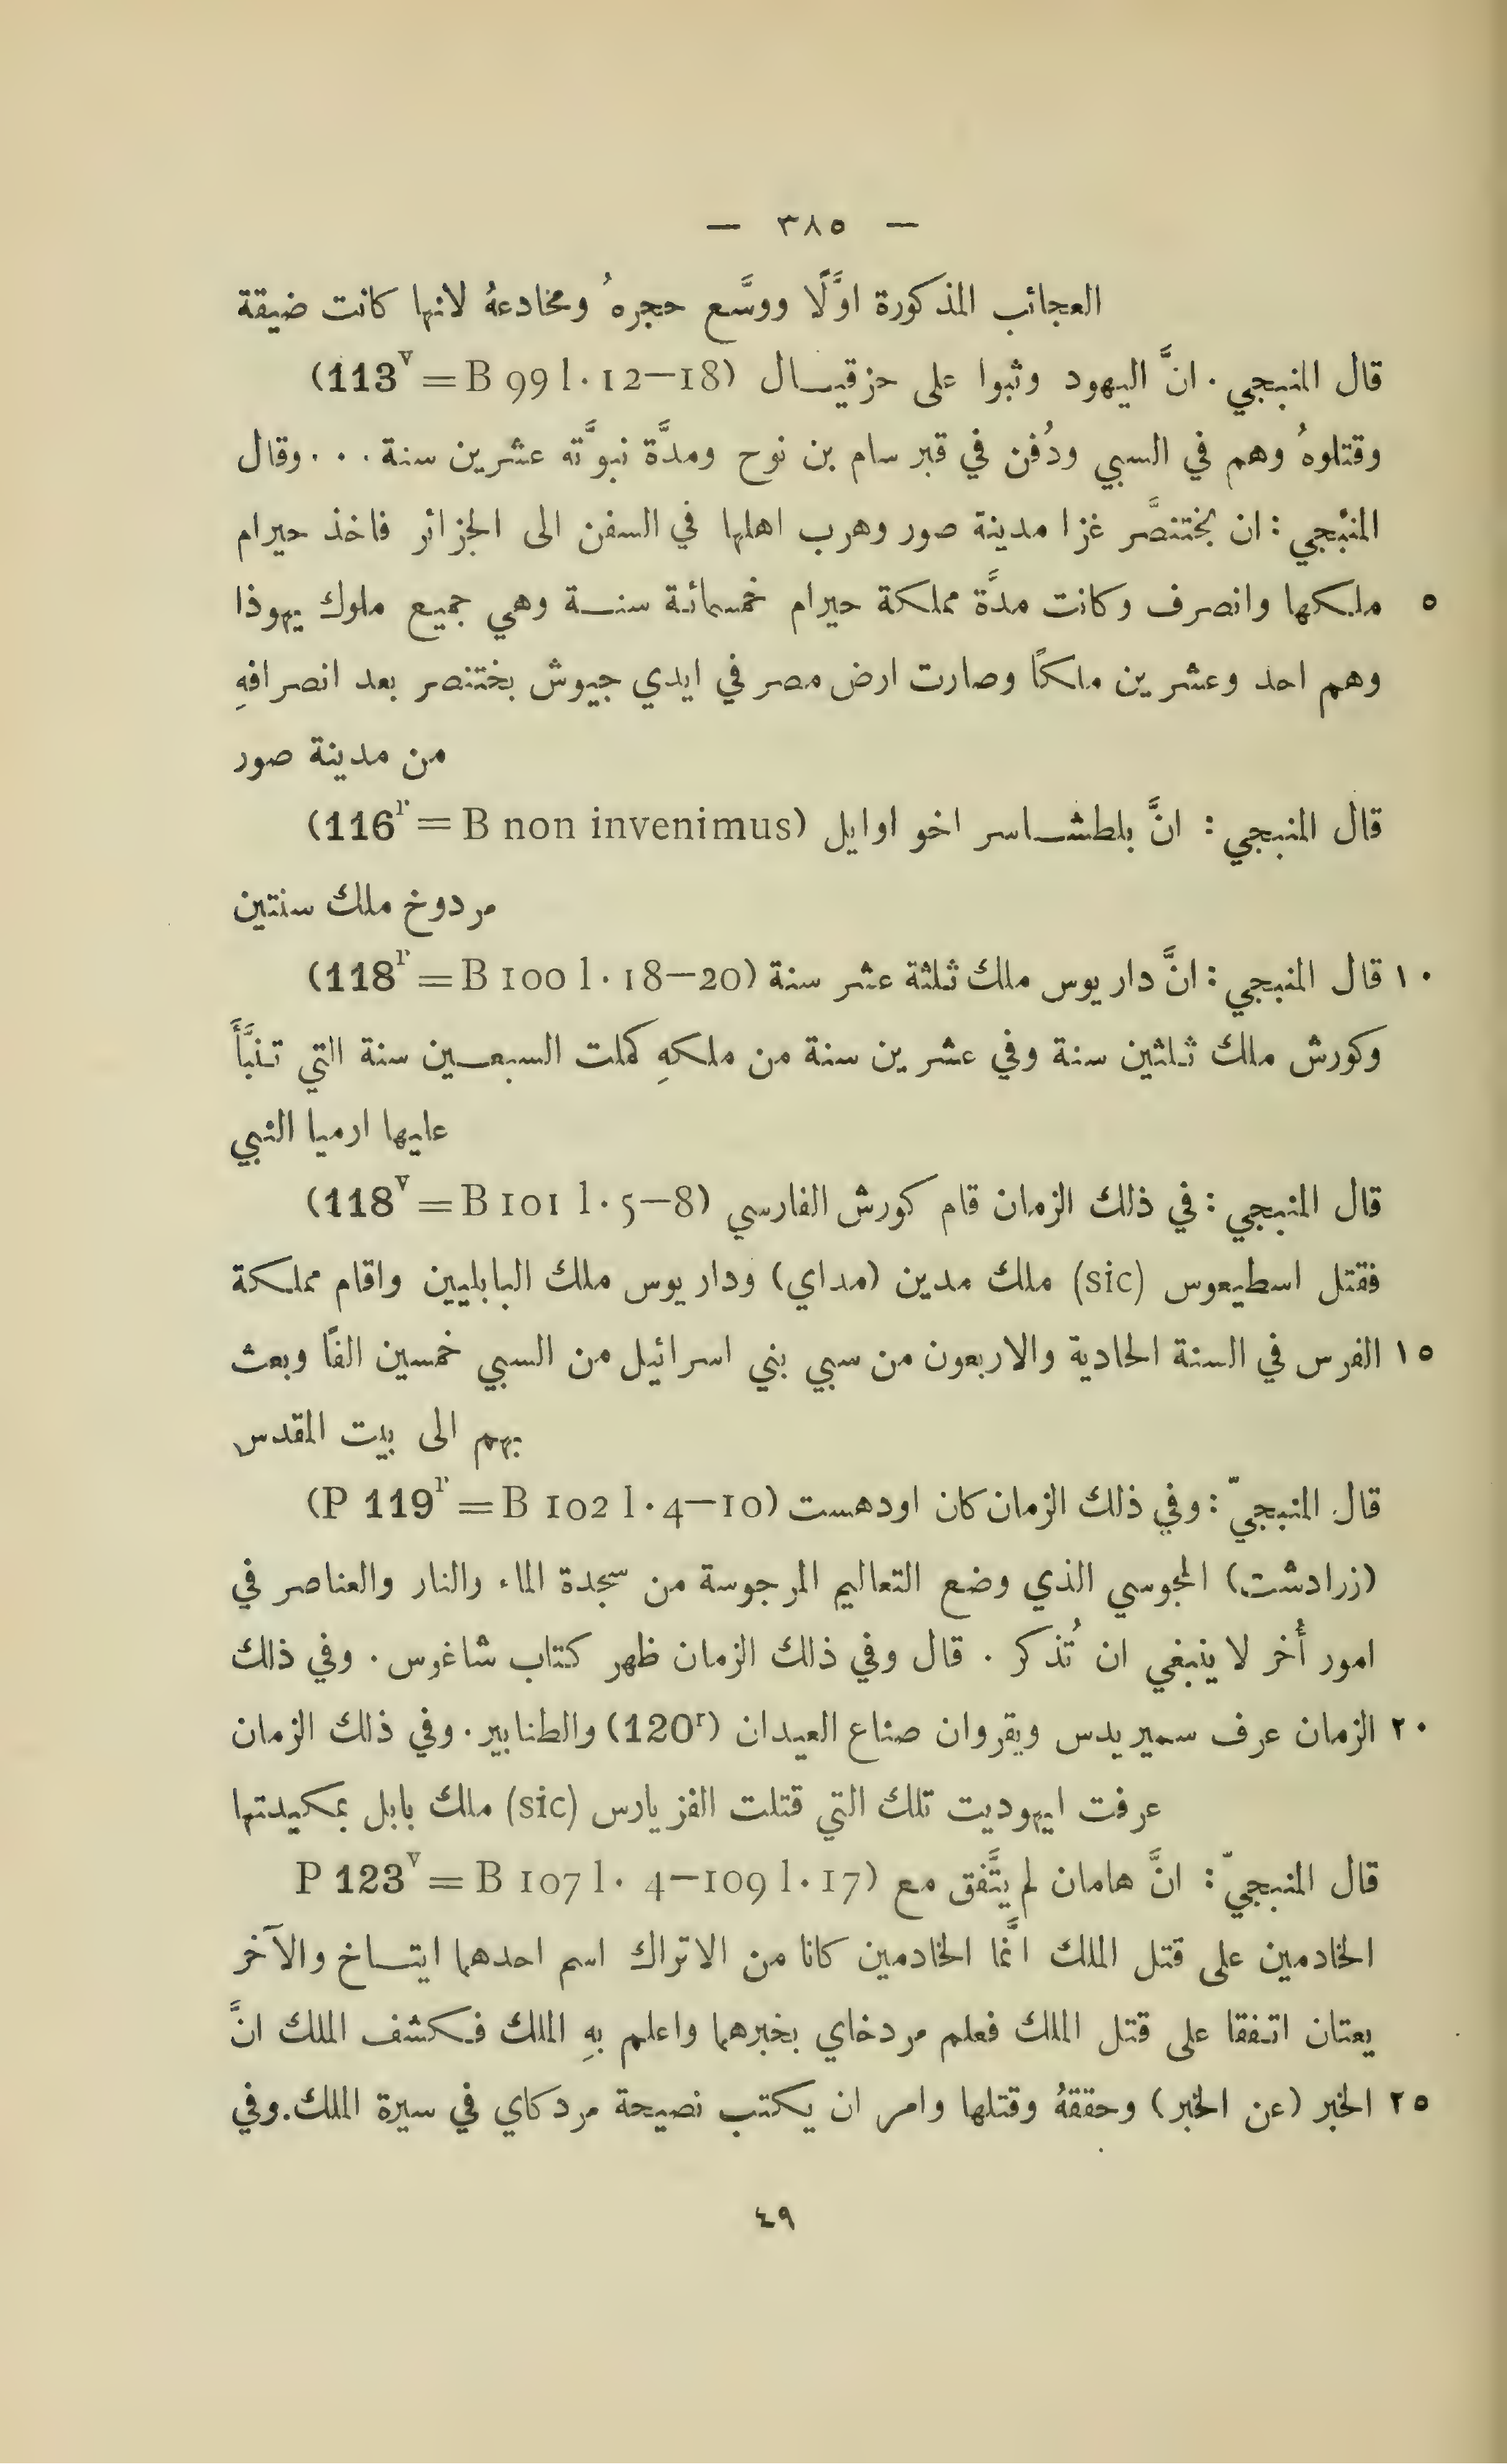 — ٣٨٥ —
العجائب المذكورة اوَّلًا ووسَّع حجرهُ ومخادعهُ لانها كانت ضيقة
قال المنبجي . انَّ اليهود وثبوا على حزقيال (113v = B 99 l. 12—18)
وقتلوهُ وهم في السبي ودُفن في قبر سام بن نوح ومدَّة نبوَّته عشرين سنة . . . وقال
المنبجي : ان بختنصَّر غزا مدينة صور وهرب اهلها في السفن الى الجزائر فاخذ حيرام
٥ ملكها وانصرف وكانت مدَّة مملكة حيرام خمسمائة سنة وهي جميع ملوك يهوذا
وهم احد وعشرين ملكًا وصارت ارض مصر في ايدي جيوش بختنصر بعد انصرافهِ
من مدينة صور
قال المنبجي : انَّ بلطشاسر اخو اوايل (116r = B non invenimus)
مردوخ ملك سنتين
١٠ قال المنبجي : انَّ داريوس ملك ثلثة عشر سنة (118r = B 100 l. 18—20)
وكورش ملك ثلثين سنة وفي عشرين سنة من ملكهِ كملت السبعين سنة التي تنبَّأَ
عليها ارميا النبي
قال المنبجي : في ذلك الزمان قام كورش الفارسي (118v = B 101 l. 5—8)
فقتل اسطيعوس (sic) ملك مدين (مداي) وداريوس ملك البابليين واقام مملكة
١٥ الفرس في السنة الحادية والاربعون من سبي بني اسرائيل من السبي خمسين الفًا وبعث
بهم الى بيت المقدس
قال المنبجيّ : وفي ذلك الزمان كان اودهست (P 119r = B 102 l. 4—10)
(زرادشت) المجوسي الذي وضع التعاليم المرجوسة من سجدة الماء والنار والعناصر في
امور أُخر لا ينبغي ان تُذكر . قال وفي ذلك الزمان ظهر كتاب شاغوس . وفي ذلك
٢٠ الزمان عرف سميريدس ويقروان صناع العيدان (120r) والطنابير . وفي ذلك الزمان
عرفت ايهوديت تلك التي قتلت الفزيارس (sic) ملك بابل بمكيدتها
قال المنبجيّ : انَّ هامان لم يتَّفق مع (P 123v = B 107 l. 4—109 l. 17
الخادمين على قتل الملك انَّما الخادمين كانا من الاتراك اسم احدهما ايتاخ والآخر
يعتان اتفقا على قتل الملك فعلم مردخاي بخبرهما واعلم بهِ الملك فكشف الملك انَّ
٢٥ الخبر (عن الخبر) وحققهُ وقتلها وامر ان يكتب نصيحة مردكاي في سيرة الملك. وفي
٤٩